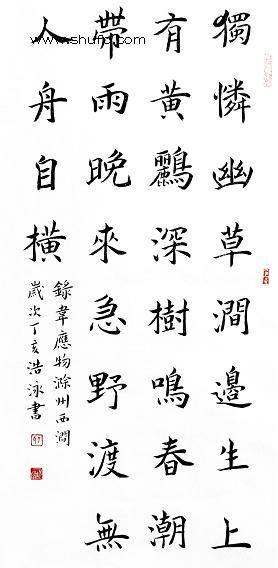 獨憐幽草澗邊生上
有黃鸝深樹鳴春潮
帶雨晚來急野渡無
人舟自橫
錄韋應物滁州西澗
歲次丁亥浩泳書